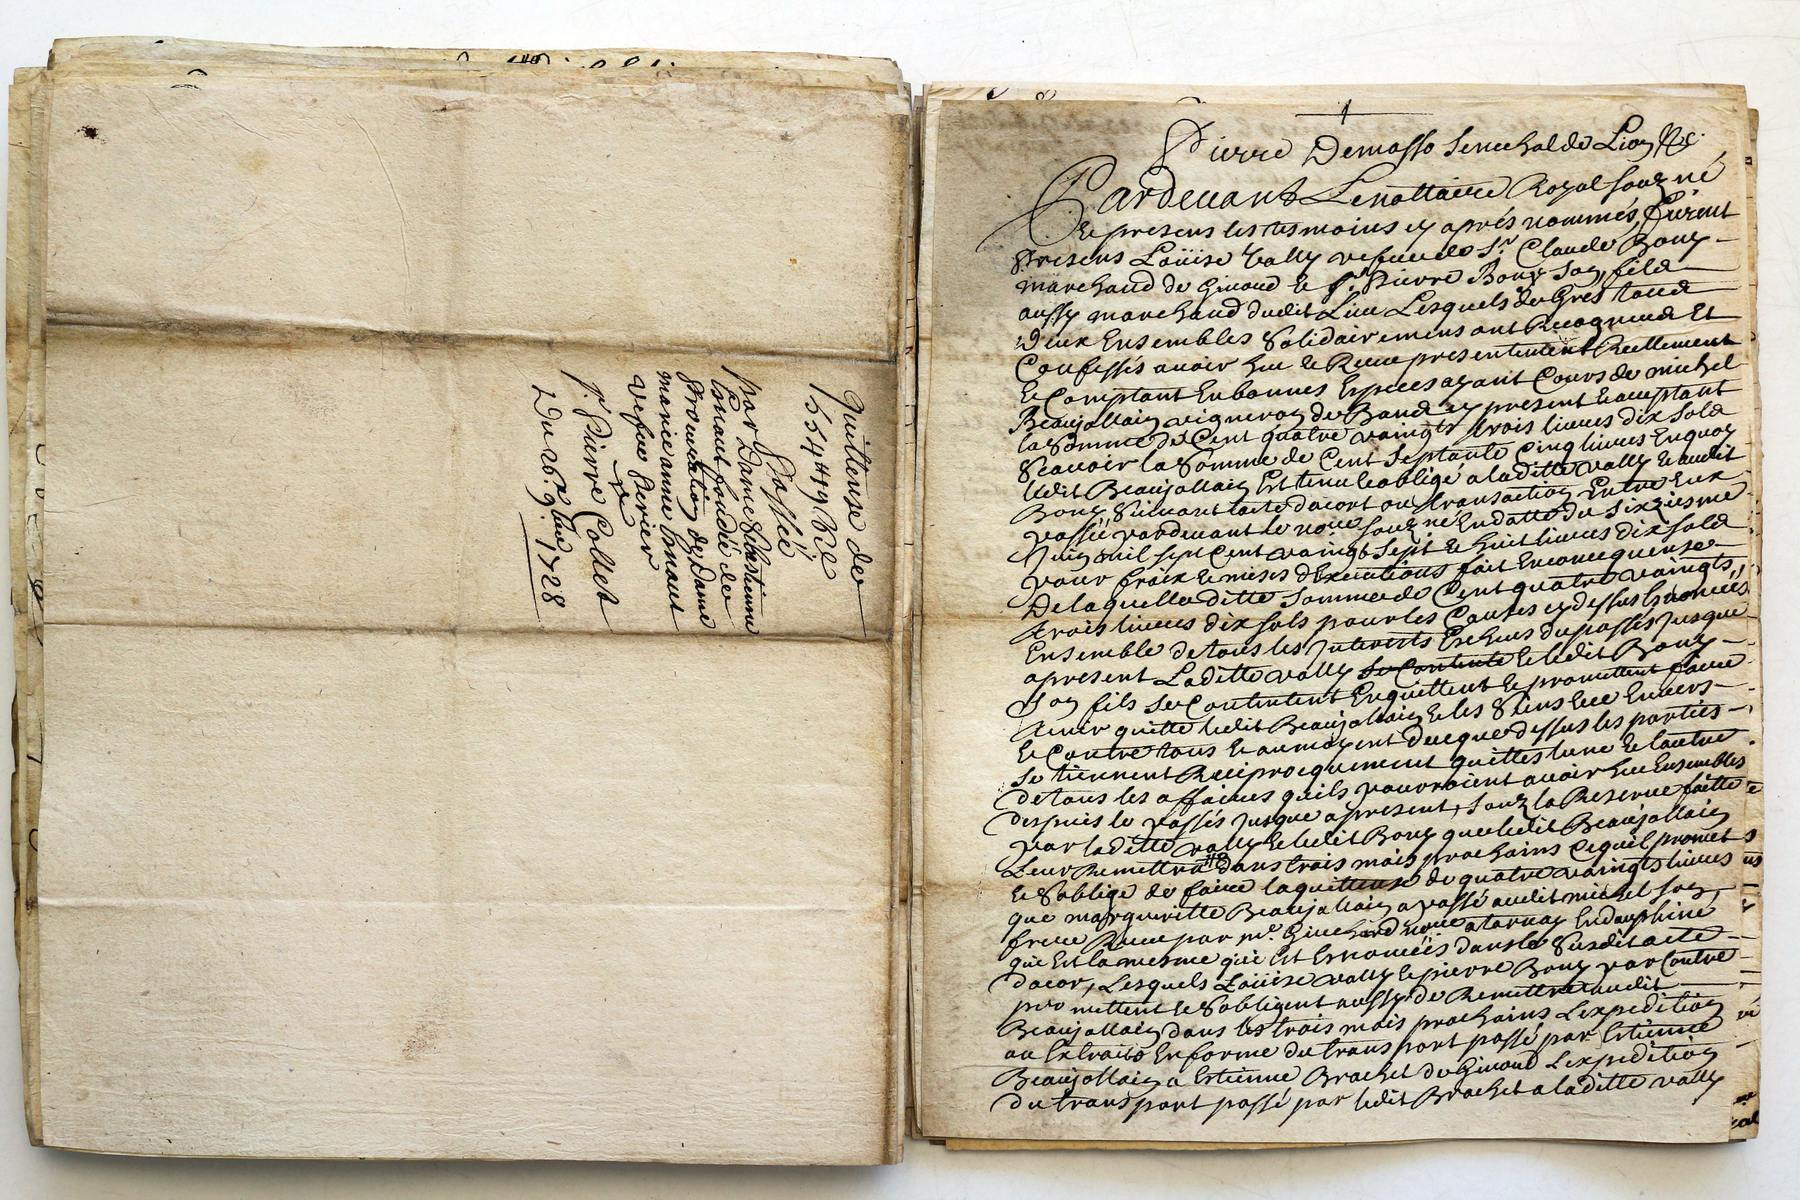 Quittense de
554ᵗᵗ 19ˢ 8ᵈ
Passée
par Dame Sibastienne
Tonaut fondée de
procuration de Dame
marie anne Tonaut
vefve Perier
a
Sʳ. Pierre Collet
Du 26ᵉ 9.bre 1728
Pierre Demasso Senechal de Lion &c
Pardevant Lenottaire Royal souzné
Et presens les tesmoins cy aprés nommés, furent
presens Loüise vally vefve de Sʳ. Claude Bouy
marchand de Givord et sʳ. Pierre Bouy son fils
aussy marchand dudit Lieu Lesquels de Gres tous
Deux Ensembles Solidairemens ont Recognus Et
Confessés avoir heu et Receu presentement Reellement
Et Comptant En bonnes Especes ayant Cours de michel
Beaujollain vigneron de cy present Et acceptant
la Somme de Cent quatre vaingts trois livres dix sols
Scavoir la Somme de Cent Septante Cinq livres En quoy
ledit Beaujollain Est tenu et obligé a laditte vally Et audit
Bouy Suivant lacte dacort ou transaction Entre Eux
passée pardevant le noʳᵉ souzné En datte du Sixiesme
Juin mil sept Cent vaingt Sept Et huit livres dix sols
pour fraix Et mises dExecutions fait En consequense
De laquelle ditte Somme de Cent quatre vaingts
trois livres dix sols pour les Causes cy dessus Enoncées
Ensemble de tous les Interests Escheus du passés Jusque
apresent Laditte vally se Contente Et ledit Bouy
son fils se Contentent En quittent Et promettent faire
tenir quitte ledit Beaujollain Et les Siens Et Envers
Et Contre tous Et au moyent de ce que dessus les parties
se tiennent Reciprocquement quittes lune Et lautre
de tous les affaires quils pourroient avoir heu Ensembles
despuis le passés Jusque apresent, souz la Reserve faitte
par laditte vally Et ledit Bouy que ledit Beaujollain
Leur Remettra dans trois mois prochains Ce quil promet
Et Soblige de faire la quittense de quatre vaingts livres
que margueritte Beaujollain a passé audit michel son
frere Receue par mᵉ. Guichard noʳᵉ a ternay En dauphiné
qui Est la mesme qui Est Enoncées dans le Susdit acte
dacor, Lesquels Loüise vally Et pierre Bouy par Contre
promettent Et Sobligent aussy de Remettre audit
Beaujollain dans les trois mois prochains Lexpedition
ou Extraits En forme du transport passé par Estienne
Beaujollain a Estienne Brachet de Givord Lexpedition
du transport passé par ledit Brachet a laditte vally